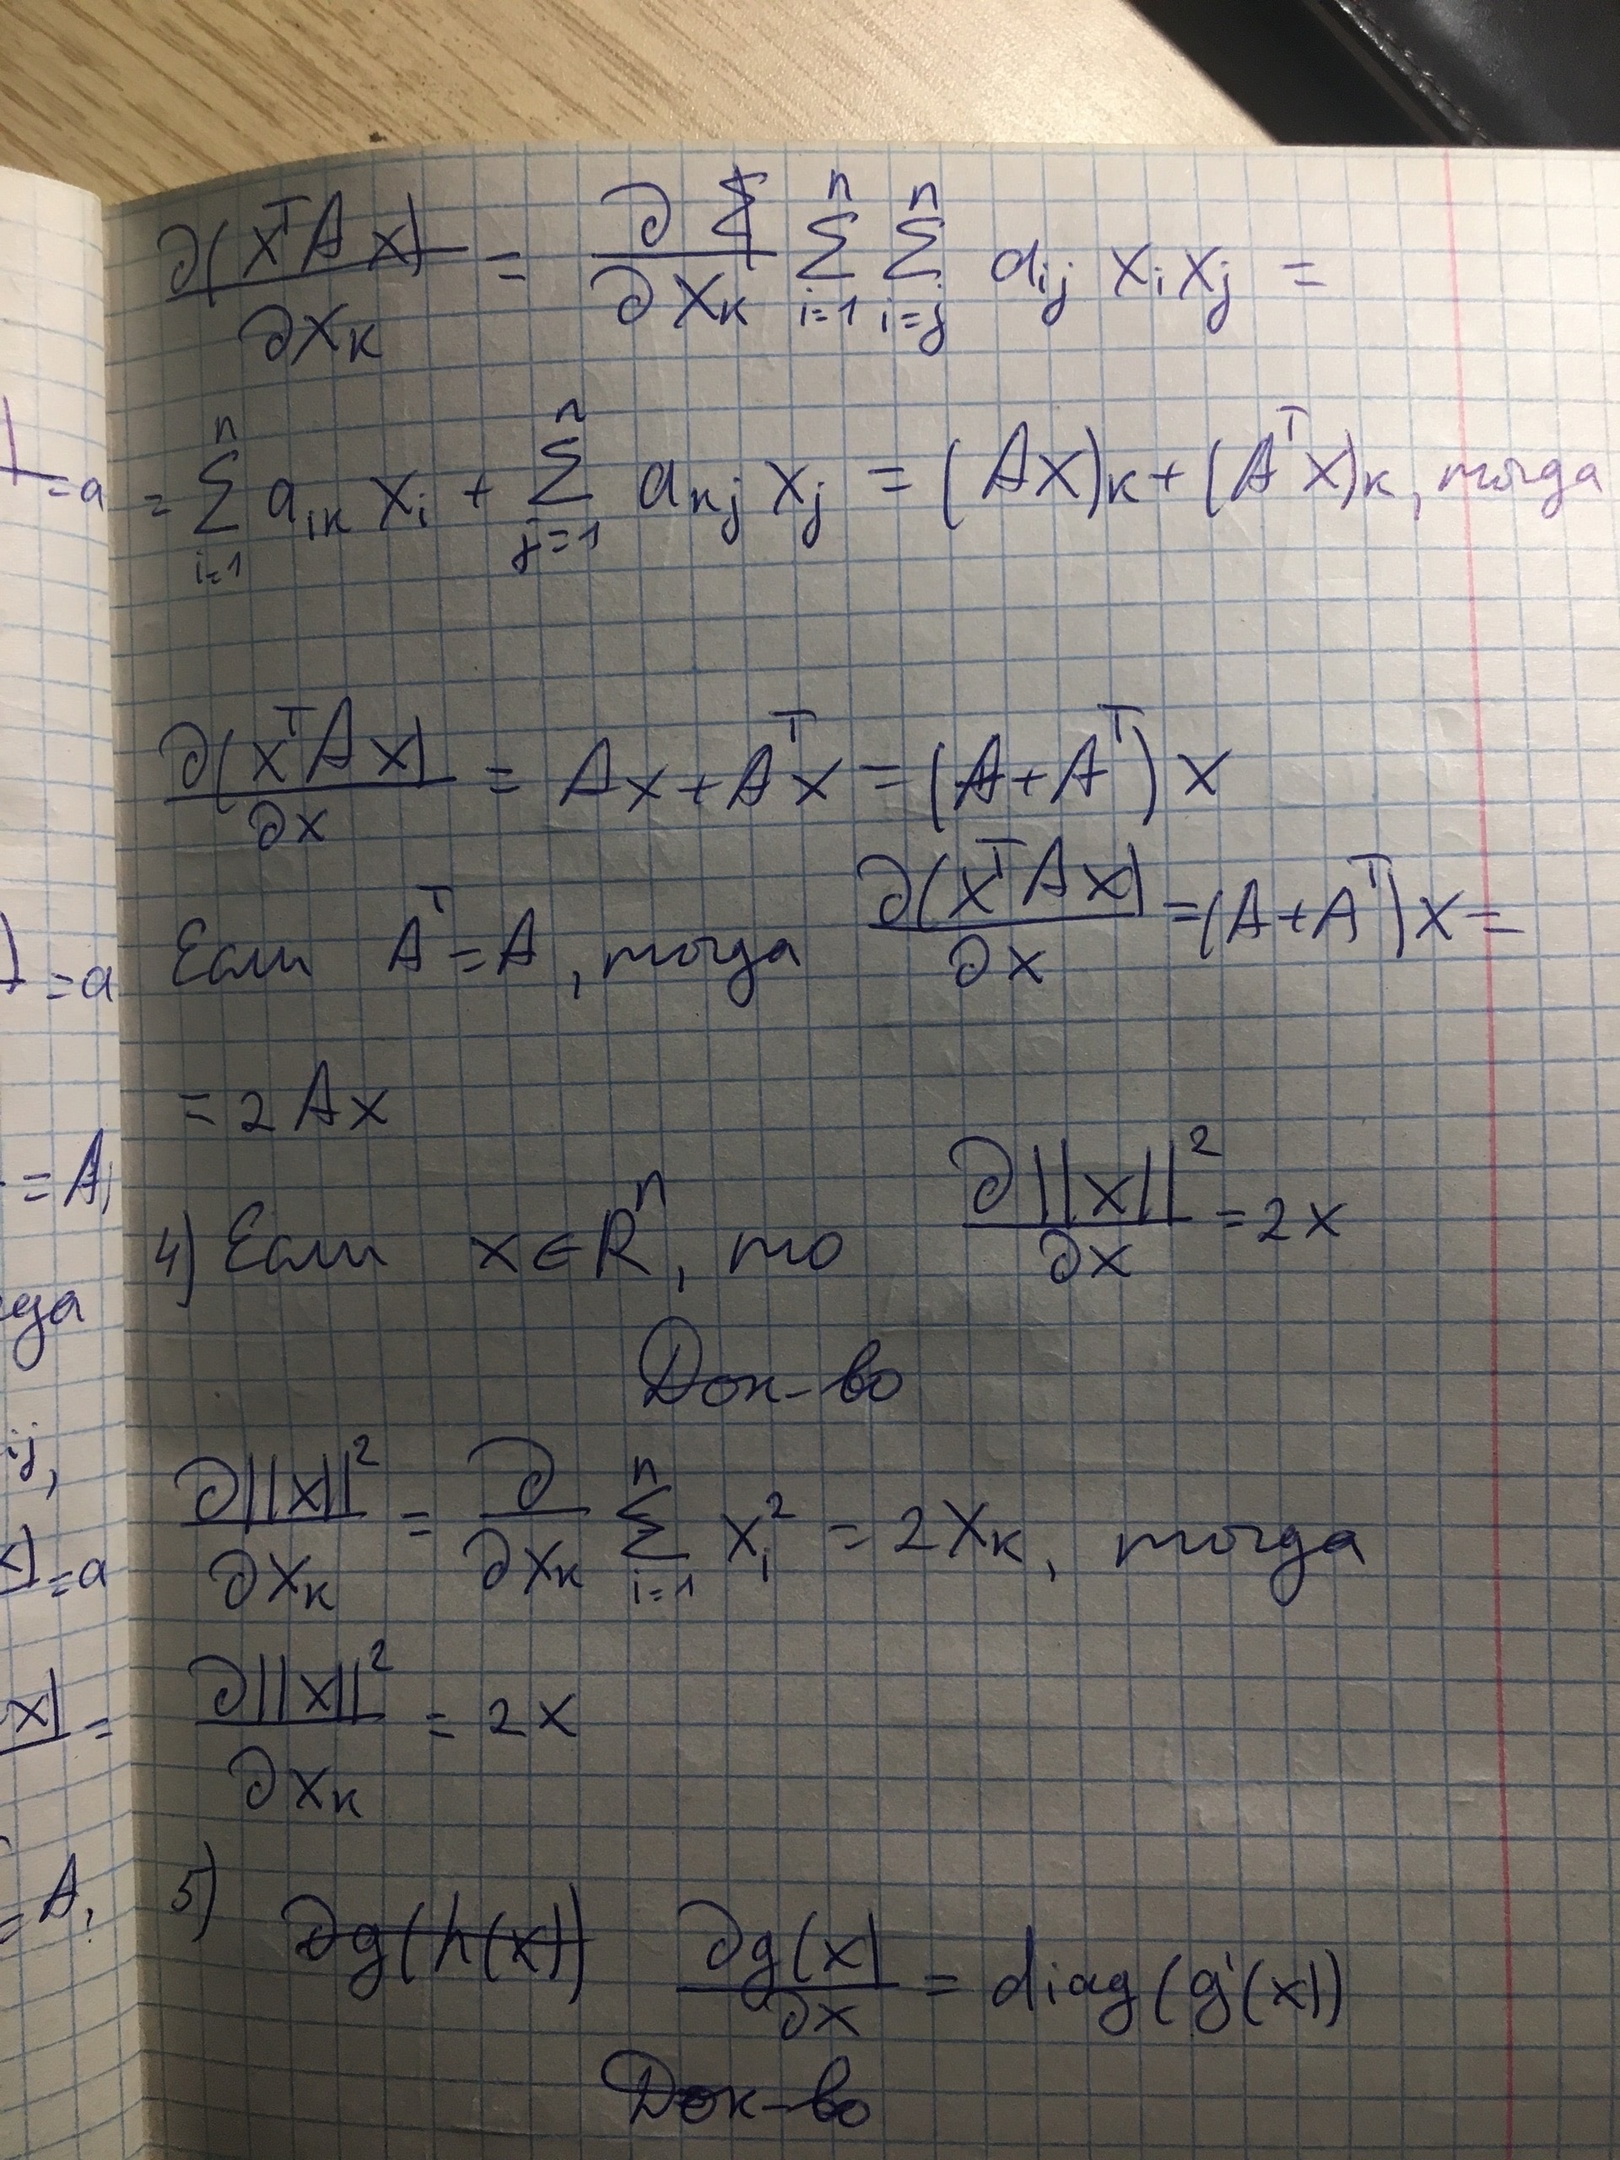 ∂(xᵀAx)/∂xₖ = ∂/∂xₖ ∑ᵢ₌₁ⁿ ∑ᵢ₌ⱼⁿ aᵢⱼ xᵢ xⱼ =
= ∑ᵢ₌₁ⁿ aᵢₖ xᵢ + ∑ⱼ₌₁ⁿ aₖⱼ xⱼ = (Ax)ₖ + (Aᵀx)ₖ, тогда
∂(xᵀAx)/∂x = Ax + Aᵀx = (A + Aᵀ)x
Если Aᵀ = A, тогда ∂(xᵀAx)/∂x = (A + Aᵀ)x =
= 2Ax
4) Если x ∈ Rⁿ, то ∂||x||²/∂x = 2x
Док-во
∂||x||²/∂xₖ = ∂/∂xₖ ∑ᵢ₌₁ⁿ xᵢ² = 2xₖ, тогда
∂||x||²/∂xₖ = 2x
5) ∂g(h(x)) ∂g(x)/∂x = diag(g'(x))
Док-во
= a
= a
= A,
ij,
= a
x) =
= A,